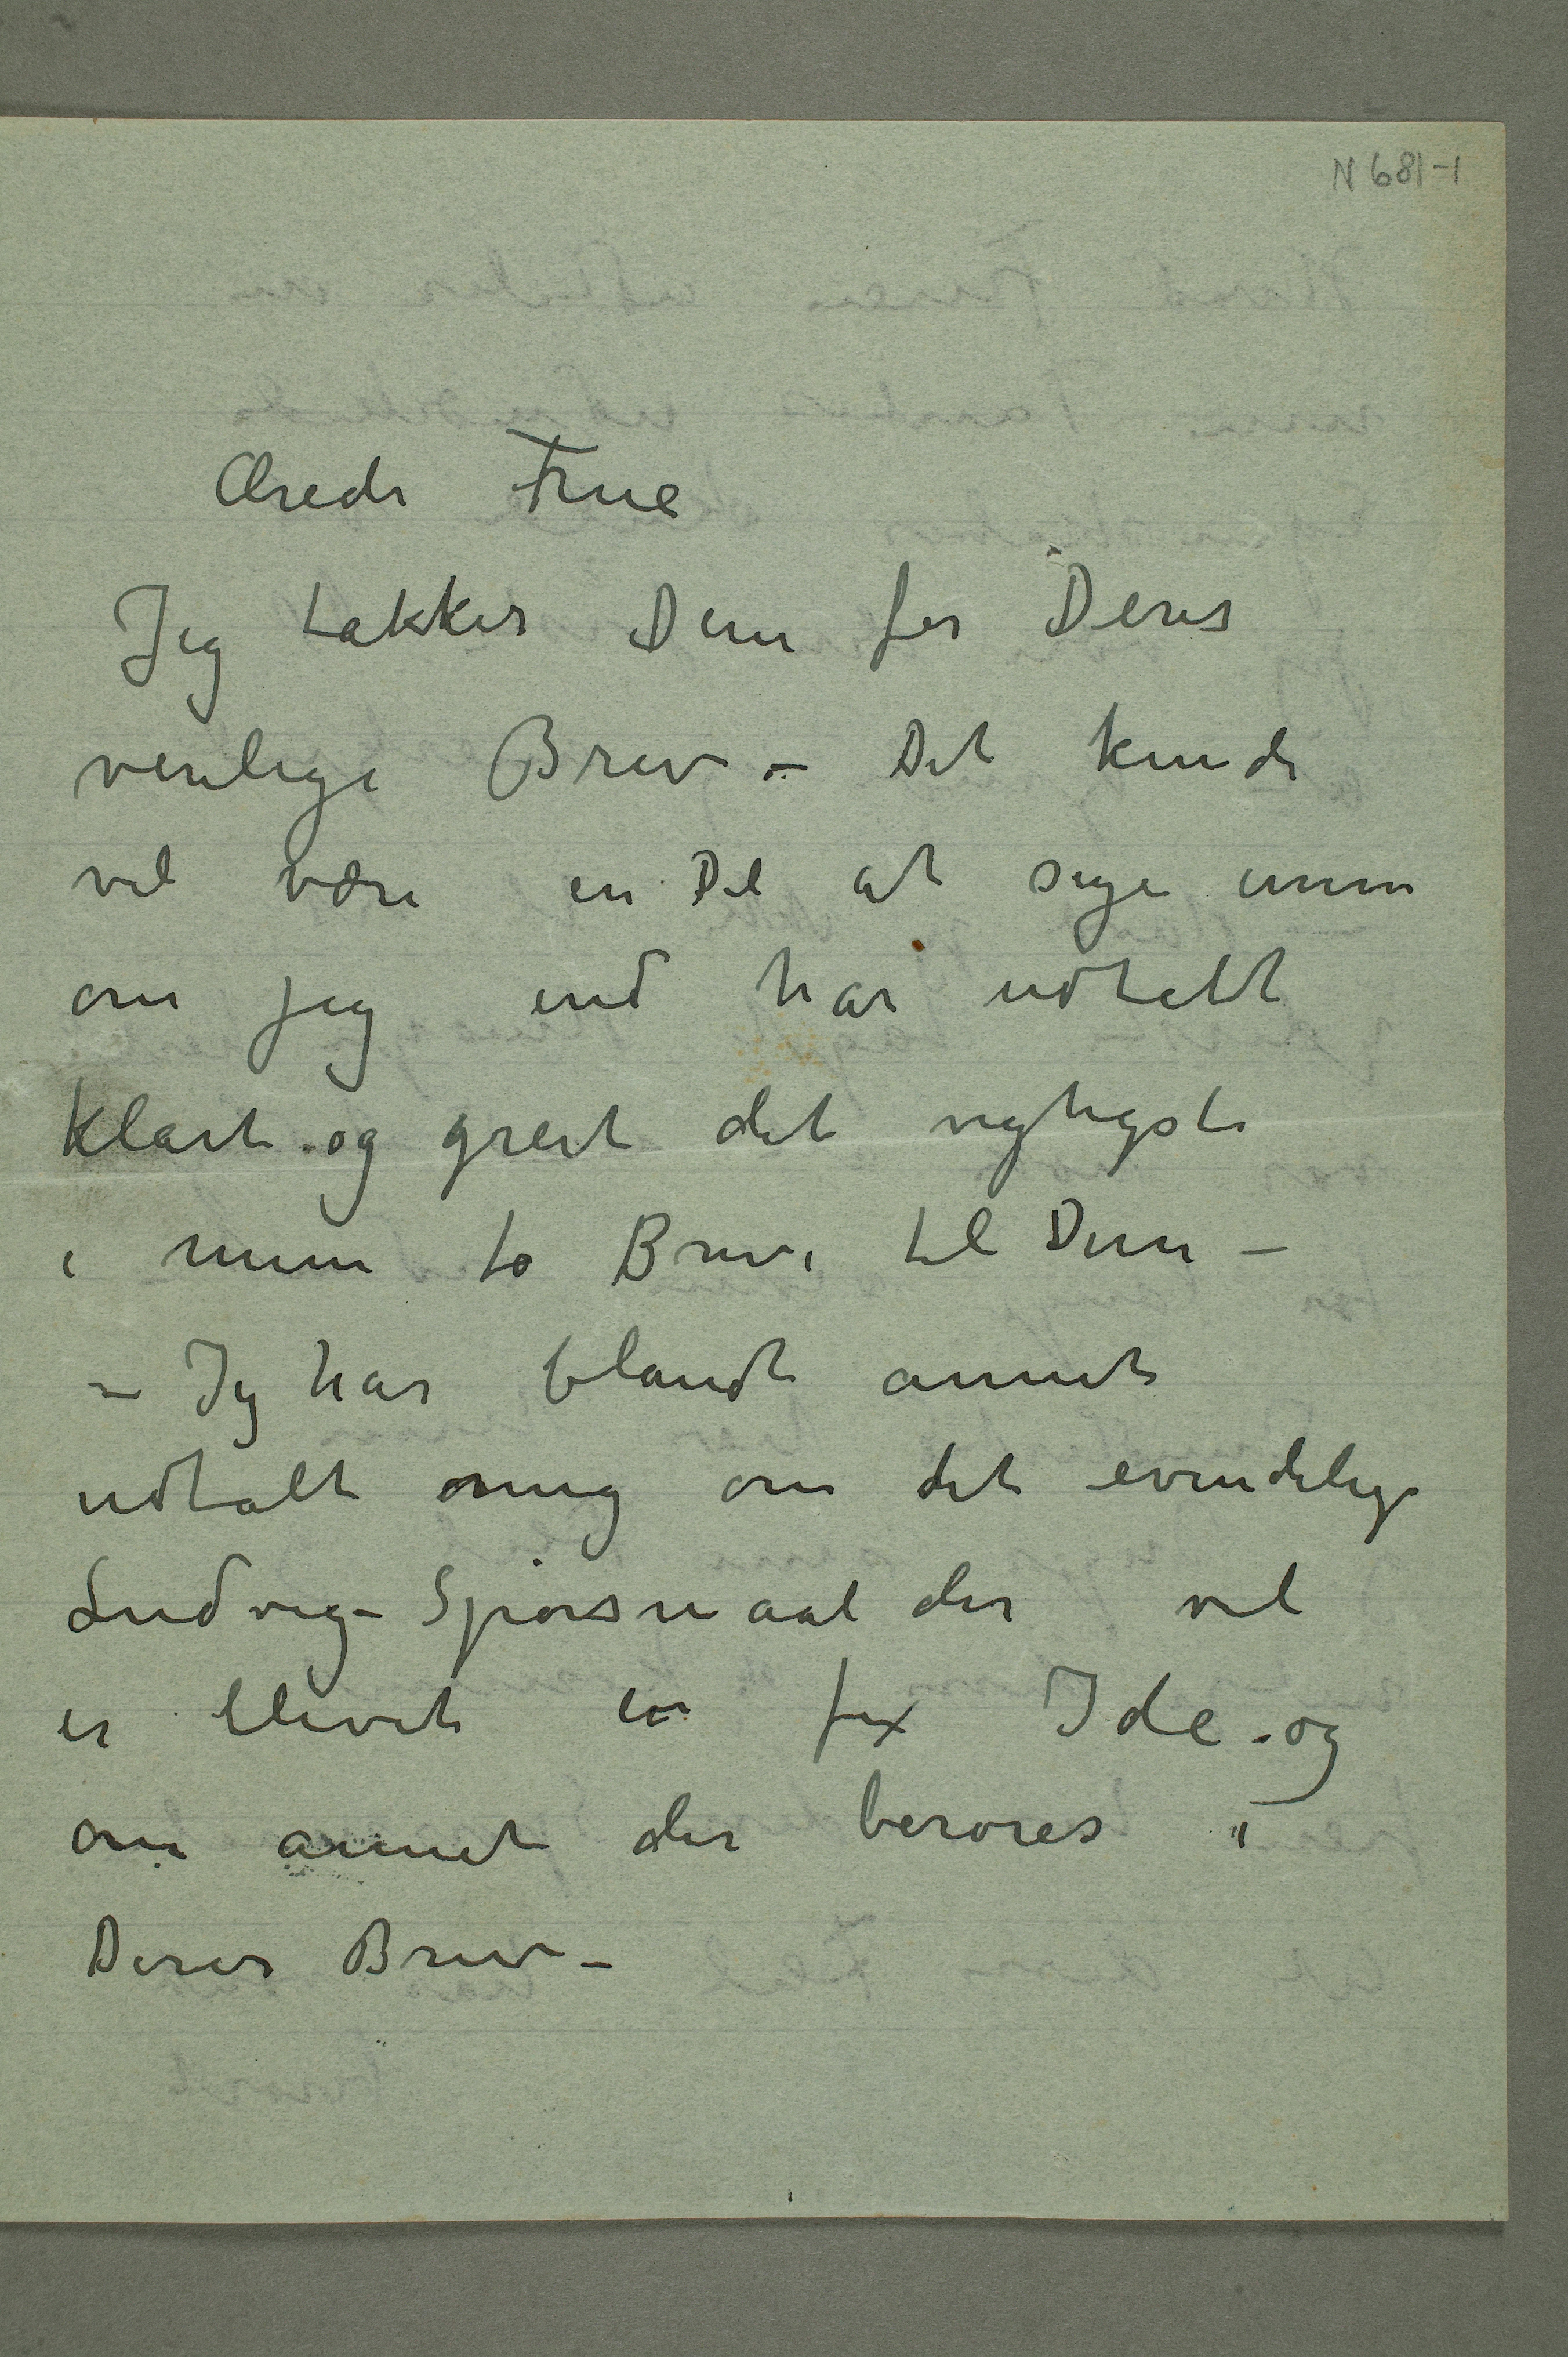 N 681-1
Ærede Frue
Jeg takker Dem for Deres
venlige Brev – Det kunde
vel være en Del at sige
om jeg end har udtalt
klart og greit det vigtigste
i mine to Breve til Dem –
– Jeg har blandt annet
udtalt mig om det evindelige
Ludvig-Spørsmaal der vel
er blevet en fix Ide og
om annet der berøres i
Deres Brev –